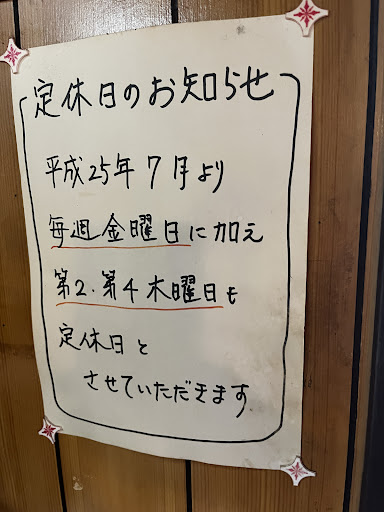 定休日のお知らせ
平成25年7月より
毎週金曜日に加え
第2.第4木曜日も
定休日と
させていただきます.